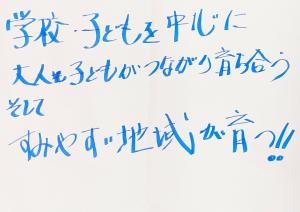 学校・子どもを中心に
大人も子どもがつながり育ち合う
そして
すみやすい地域が育つ!!